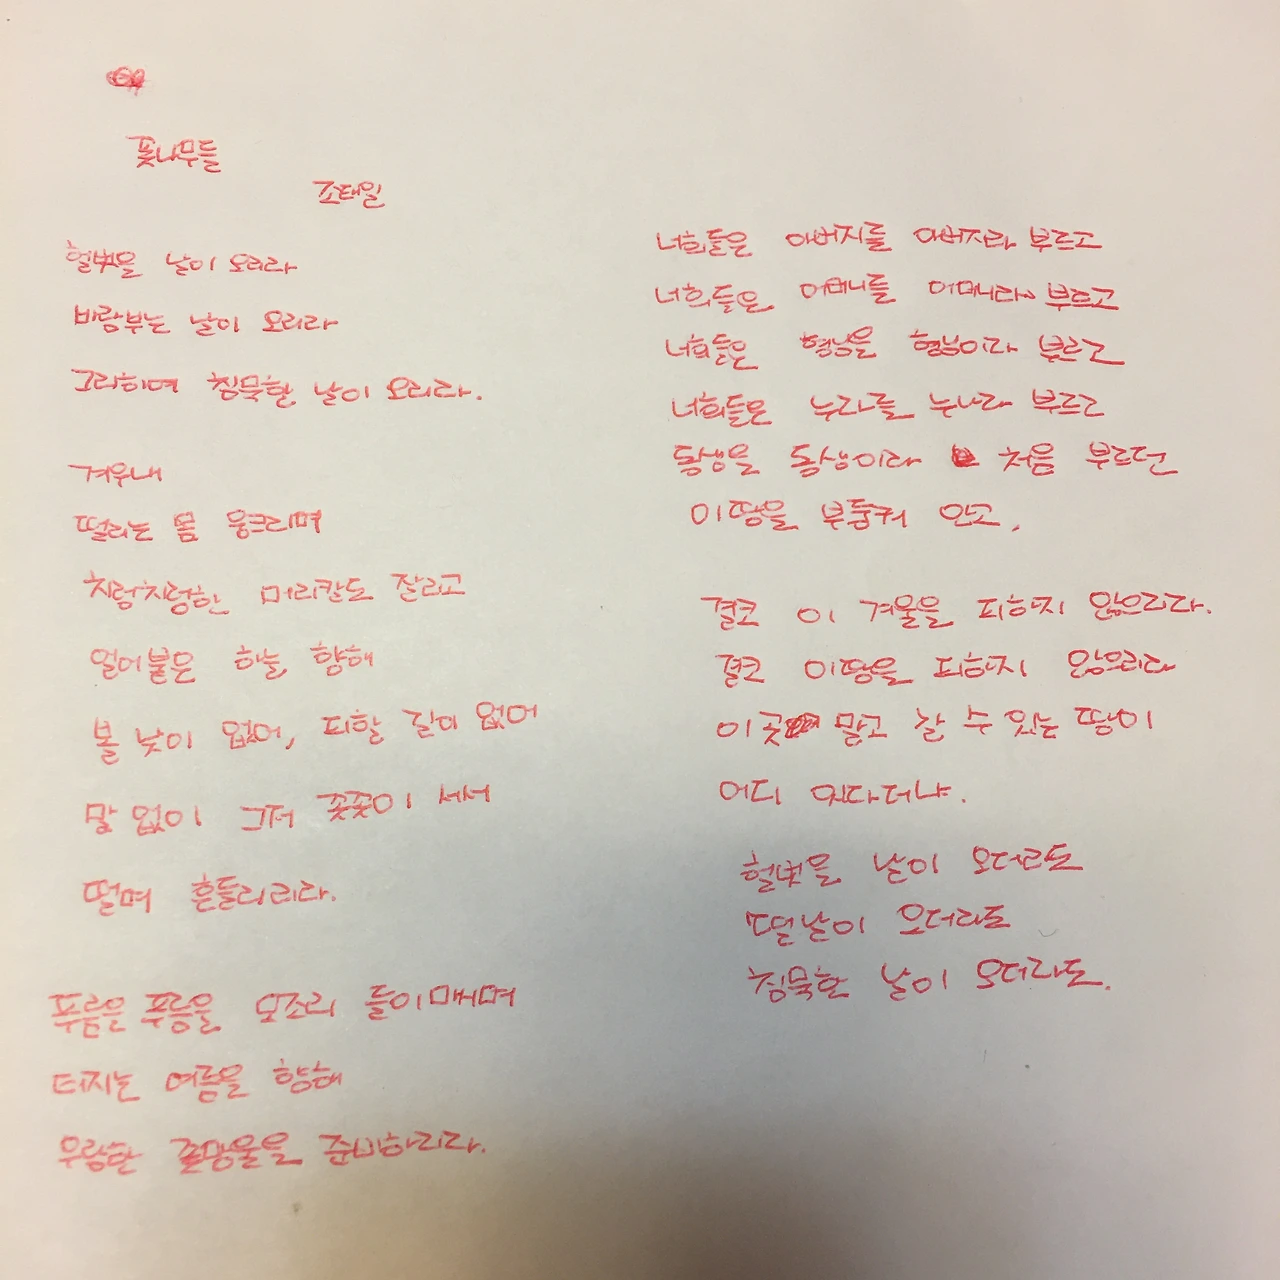 꽃나무들
조태일
헐벗을 날이 오리라
바람부는 날이 오리라
그리하며 침묵할 날이 오리라.
겨우내
떨리는 몸 웅크리며
치렁치렁한 머리칼도 잘리고
얼어붙은 하늘 향해
볼 낯이 없어, 피할 길이 없어
말 없이 그저 꼿꼿이 서서
떨며 흔들리리라.
푸름은 푸름을 모조리 들이매며
터지는 여름을 향해
우람한 꽃망울을 준비하리라.
너희들은 아버지를 아버지라 부르고
너희들은 어머니를 어머니라 부르고
너희들은 형님을 형님이라 부르고
너희들은 누나를 누나라 부르고
동생을 동생이라 처음 부르던
이땅을 부둥켜 안고,
결코 이 겨울을 피하지 않으리라.
결코 이땅을 피하지 않으리라
이곳 말고 갈 수 있는 땅이
어디 있다더냐.
헐벗을 날이 오더라도
떨날이 오더라도
침묵할 날이 오더라도.